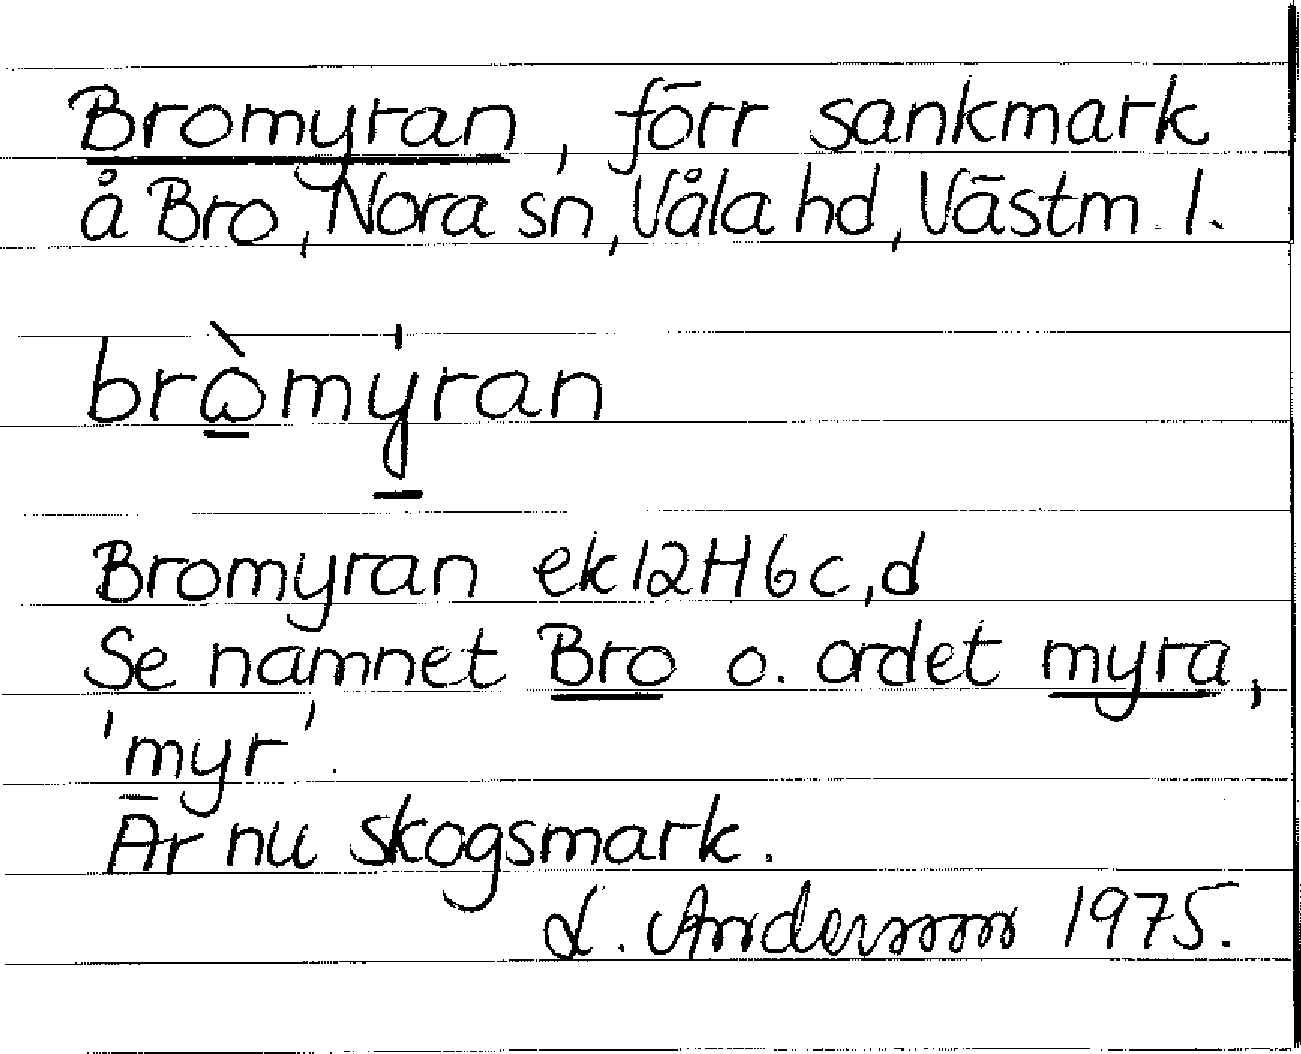 Bromyran, förr sankmark
å Bro, Nora sn, Våla hd, Västm. l.
bròmy̍ran
Bromyran ek 12H6c,d
Se namnet Bro o. ordet myra,
'myr'.
Är nu skogsmark.
L. Andersson 1975.